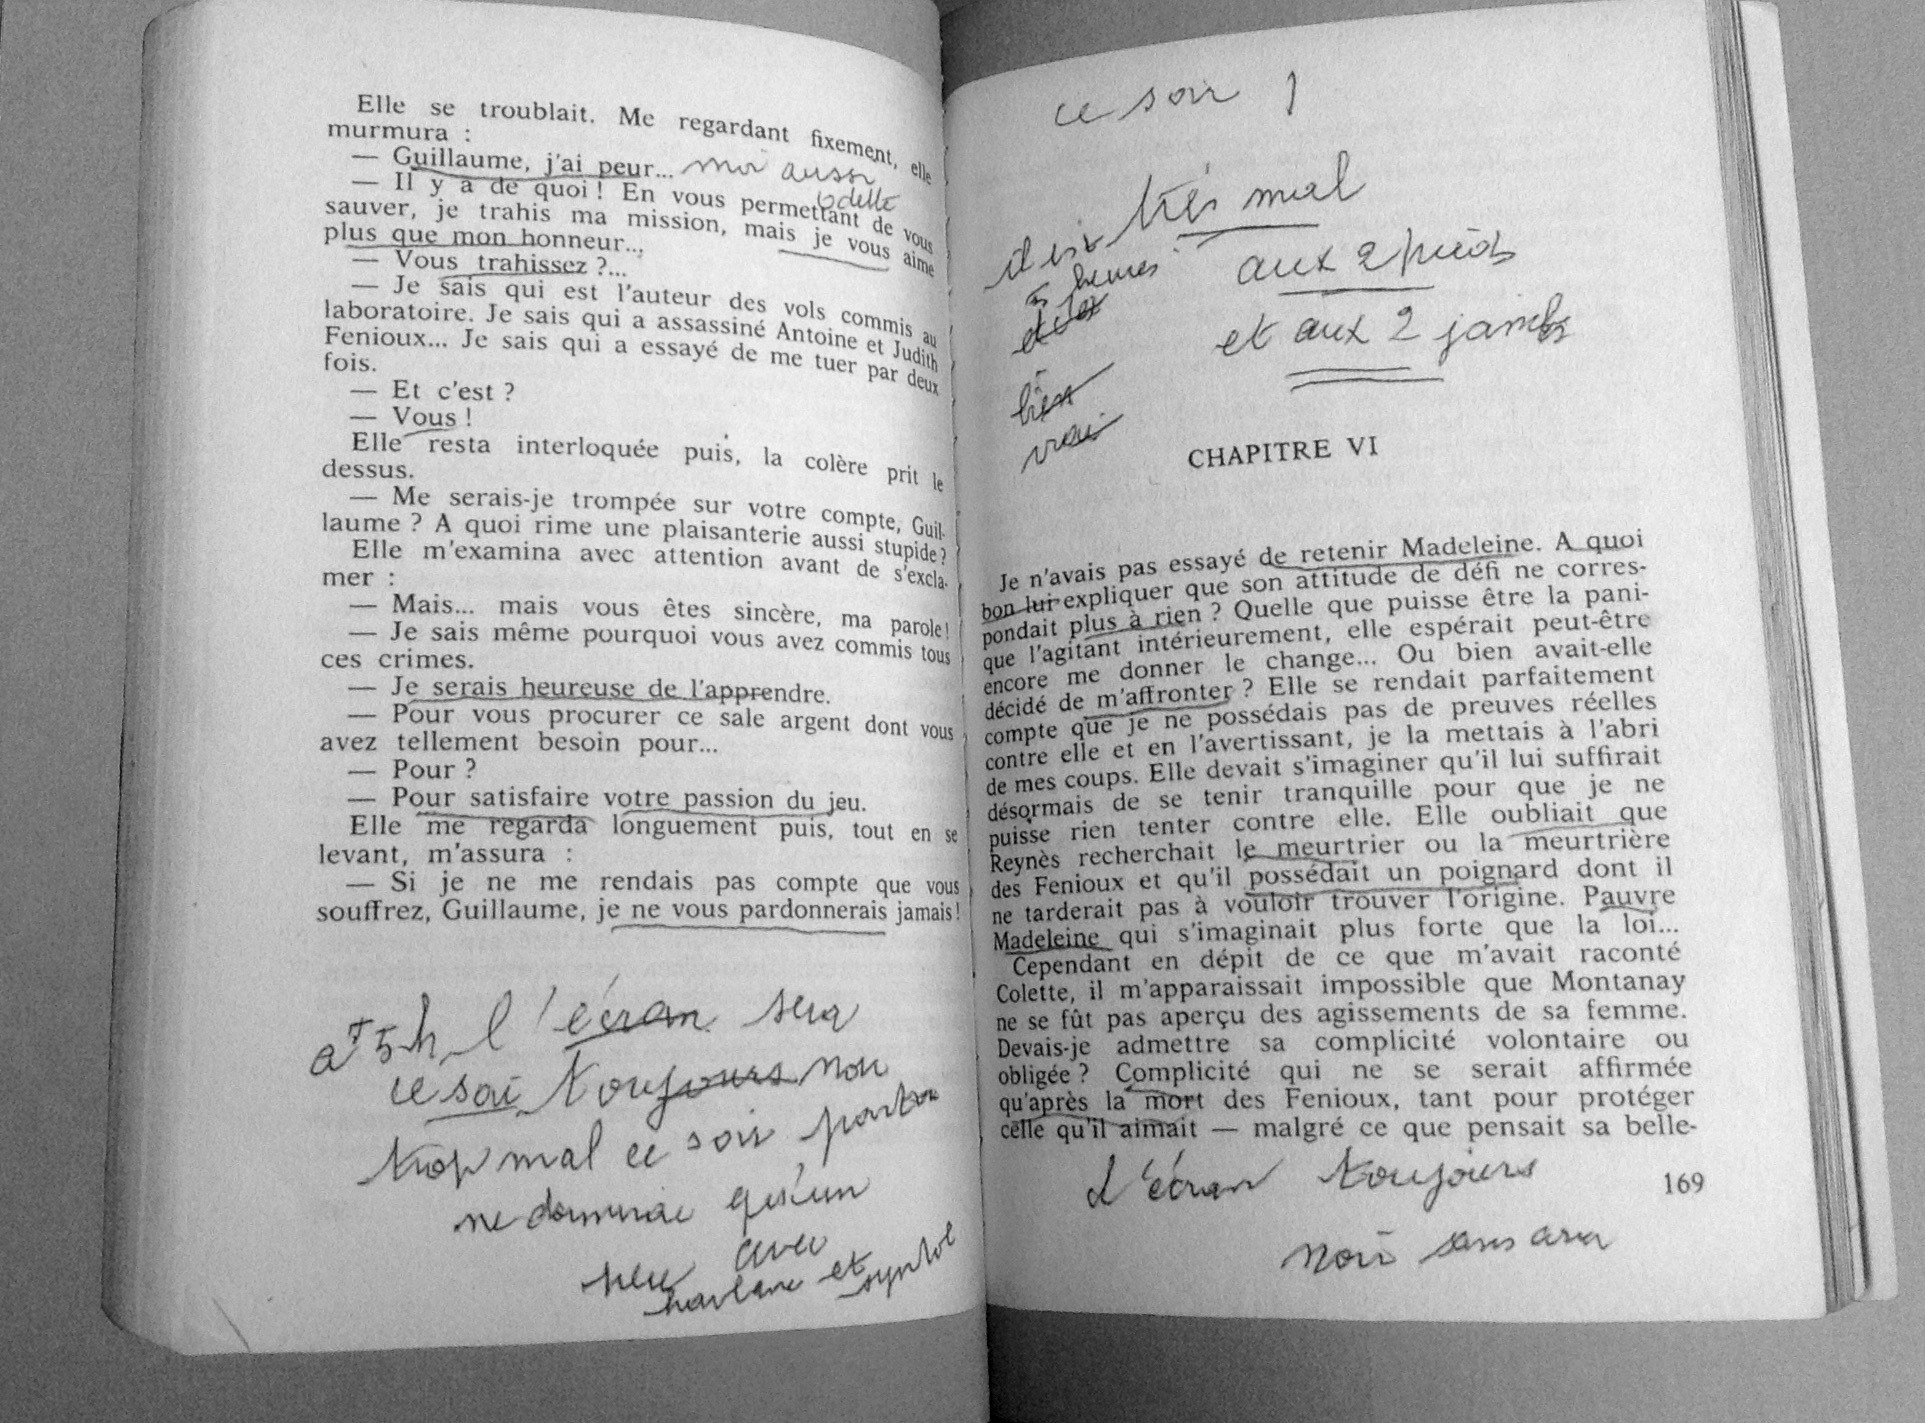 Elle se troublait. Me regardant fixement, elle
murmura :
— Guillaume, j'ai peur... moi aussi
odette
— Il y a de quoi ! En vous permettant de vous
sauver, je trahis ma mission, mais je vous aime
plus que mon honneur...
— Vous trahissez ?...
— Je sais qui est l'auteur des vols commis au
laboratoire. Je sais qui a assassiné Antoine et Judith
Fenioux... Je sais qui a essayé de me tuer par deux
fois.
— Et c'est ?
— Vous !
Elle resta interloquée puis, la colère prit le
dessus.
— Me serais-je trompée sur votre compte, Guil-
laume ? A quoi rime une plaisanterie aussi stupide ?
Elle m'examina avec attention avant de s'excla-
mer :
— Mais... mais vous êtes sincère, ma parole !
— Je sais même pourquoi vous avez commis tous
ces crimes.
— Je serais heureuse de l'apprendre.
— Pour vous procurer ce sale argent dont vous
avez tellement besoin pour...
— Pour ?
— Pour satisfaire votre passion du jeu.
Elle me regarda longuement puis, tout en se
levant, m'assura :
— Si je ne me rendais pas compte que vous
souffrez, Guillaume, je ne vous pardonnerais jamais !
5h l'écran sera
ce soi toujours noir
trop mal ce soir
qu'un
avec
et syntol
ce soir
très mal
il est
5 heures
aux 2 pieds
et aux 2 jambes
bien
vrai
CHAPITRE VI
Je n'avais pas essayé de retenir Madeleine. A quoi
bon lui expliquer que son attitude de défi ne corres-
pondait plus à rien ? Quelle que puisse être la pani-
que l'agitant intérieurement, elle espérait peut-être
encore me donner le change... Ou bien avait-elle
décidé de m'affronter ? Elle se rendait parfaitement
compte que je ne possédais pas de preuves réelles
contre elle et en l'avertissant, je la mettais à l'abri
de mes coups. Elle devait s'imaginer qu'il lui suffirait
désormais de se tenir tranquille pour que je ne
puisse rien tenter contre elle. Elle oubliait que
Reynès recherchait le meurtrier ou la meurtrière
des Fenioux et qu'il possédait un poignard dont il
ne tarderait pas à vouloir trouver l'origine. Pauvre
Madeleine qui s'imaginait plus forte que la loi...
Cependant en dépit de ce que m'avait raconté
Colette, il m'apparaissait impossible que Montanay
ne se fût pas aperçu des agissements de sa femme.
Devais-je admettre sa complicité volontaire ou
obligée ? Complicité qui ne se serait affirmée
qu'après la mort des Fenioux, tant pour protéger
celle qu'il aimait — malgré ce que pensait sa belle-
l'écran toujours
noir
169